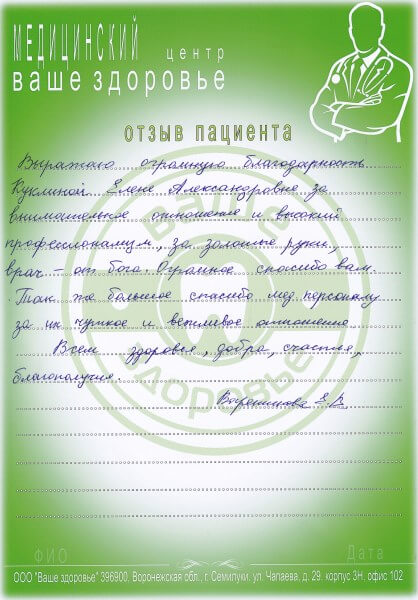 МЕДИЦИНСКИЙ центр
ваше здоровье
отзыв пациента
Выражаю огромную благодарность
Куклиной Елене Александровне за
внимательное отношение и высокий
профессионализм, за золотые руки,
врач – от бога. Огромное спасибо вам.
Так же большое спасибо мед. персоналу
за их чуткое и вежливое отношение
Всем здоровья, добра, счастья,
благополучия.
ВАШЕ
ЗДОРОВЬЕ
ФИО Дата
ООО "Ваше здоровье" 396900, Воронежская обл., г. Семилуки, ул. Чапаева, д. 29. корпус 3Н, офис 102